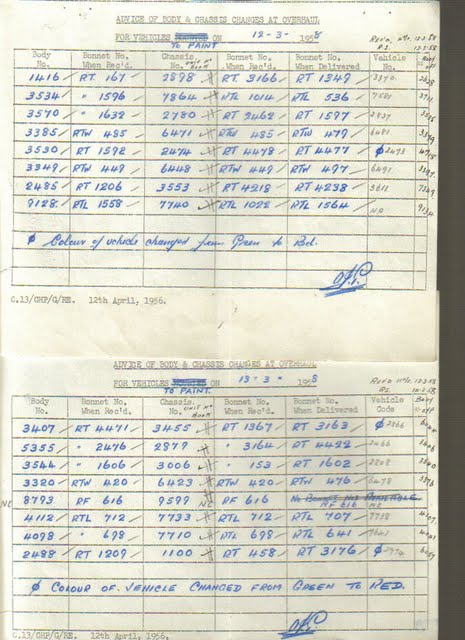 ADVICE OF BODY & CHASSIS CHANGES AT OVERHAUL
FOR VEHICLES ON 12-3- 1958
TO PAINT
Body No. Bonnet No. When Rec'd. Chassis No. UNIT No BODY Bonnet No. When Rec'd. Bonnet No. When Delivered Vehicle No. Body off
1416 RT 167 2898 RT 3166 RT 1349
3534 " 1596 7864 RTL 1014 RTL 536
3570 " 1632 2780 RT 2462 RT 1597
3385 RTW 485 6471 RTW 485 RTW 479 6481
3530 RT 1592 2474 RT 4478 RT 4477 Ø 2473
3349 RTW 449 6448 RTW 449 RTW 497 6491
2485 RT 1206 3553 RT 4218 RT 4238
9128 RTL 1558 7740 RTL 1022 RTL 1564 NA 9134
Ø Colour of vehicle changed from Green to Red.
C.13/CHP/G/RE. 12th April, 1956.
ADVICE OF BODY & CHASSIS CHANGES AT OVERHAUL
FOR VEHICLES ON 13-3- 1958
TO PAINT
Body No. Bonnet No. When Rec'd. Chassis No. UNIT No BODY Bonnet No. When Rec'd. Bonnet No. When Delivered Vehicle Code Body off
3407 RT 4471 3455 RT 1367 RT 3163 Ø 2866
5355 " 2476 2877 " 3164 RT 4422
3544 " 1606 3006 " 153 RT 1602
3320 RTW 420 6423 RTW 420 RTW 476 6478
NC 8793 RF 616 9599 NC RF 616 RF 616 NC
4112 RTL 712 7733 RTL 712 RTL 707 7738
4098 " 698 7710 RTL 698 RTL 641
2488 RT 1209 1100 RT 458 RT 3176 Ø
Ø COLOUR OF VEHICLE CHANGED FROM GREEN TO RED.
C.13/CHP/G/RE. 12th April, 1956.